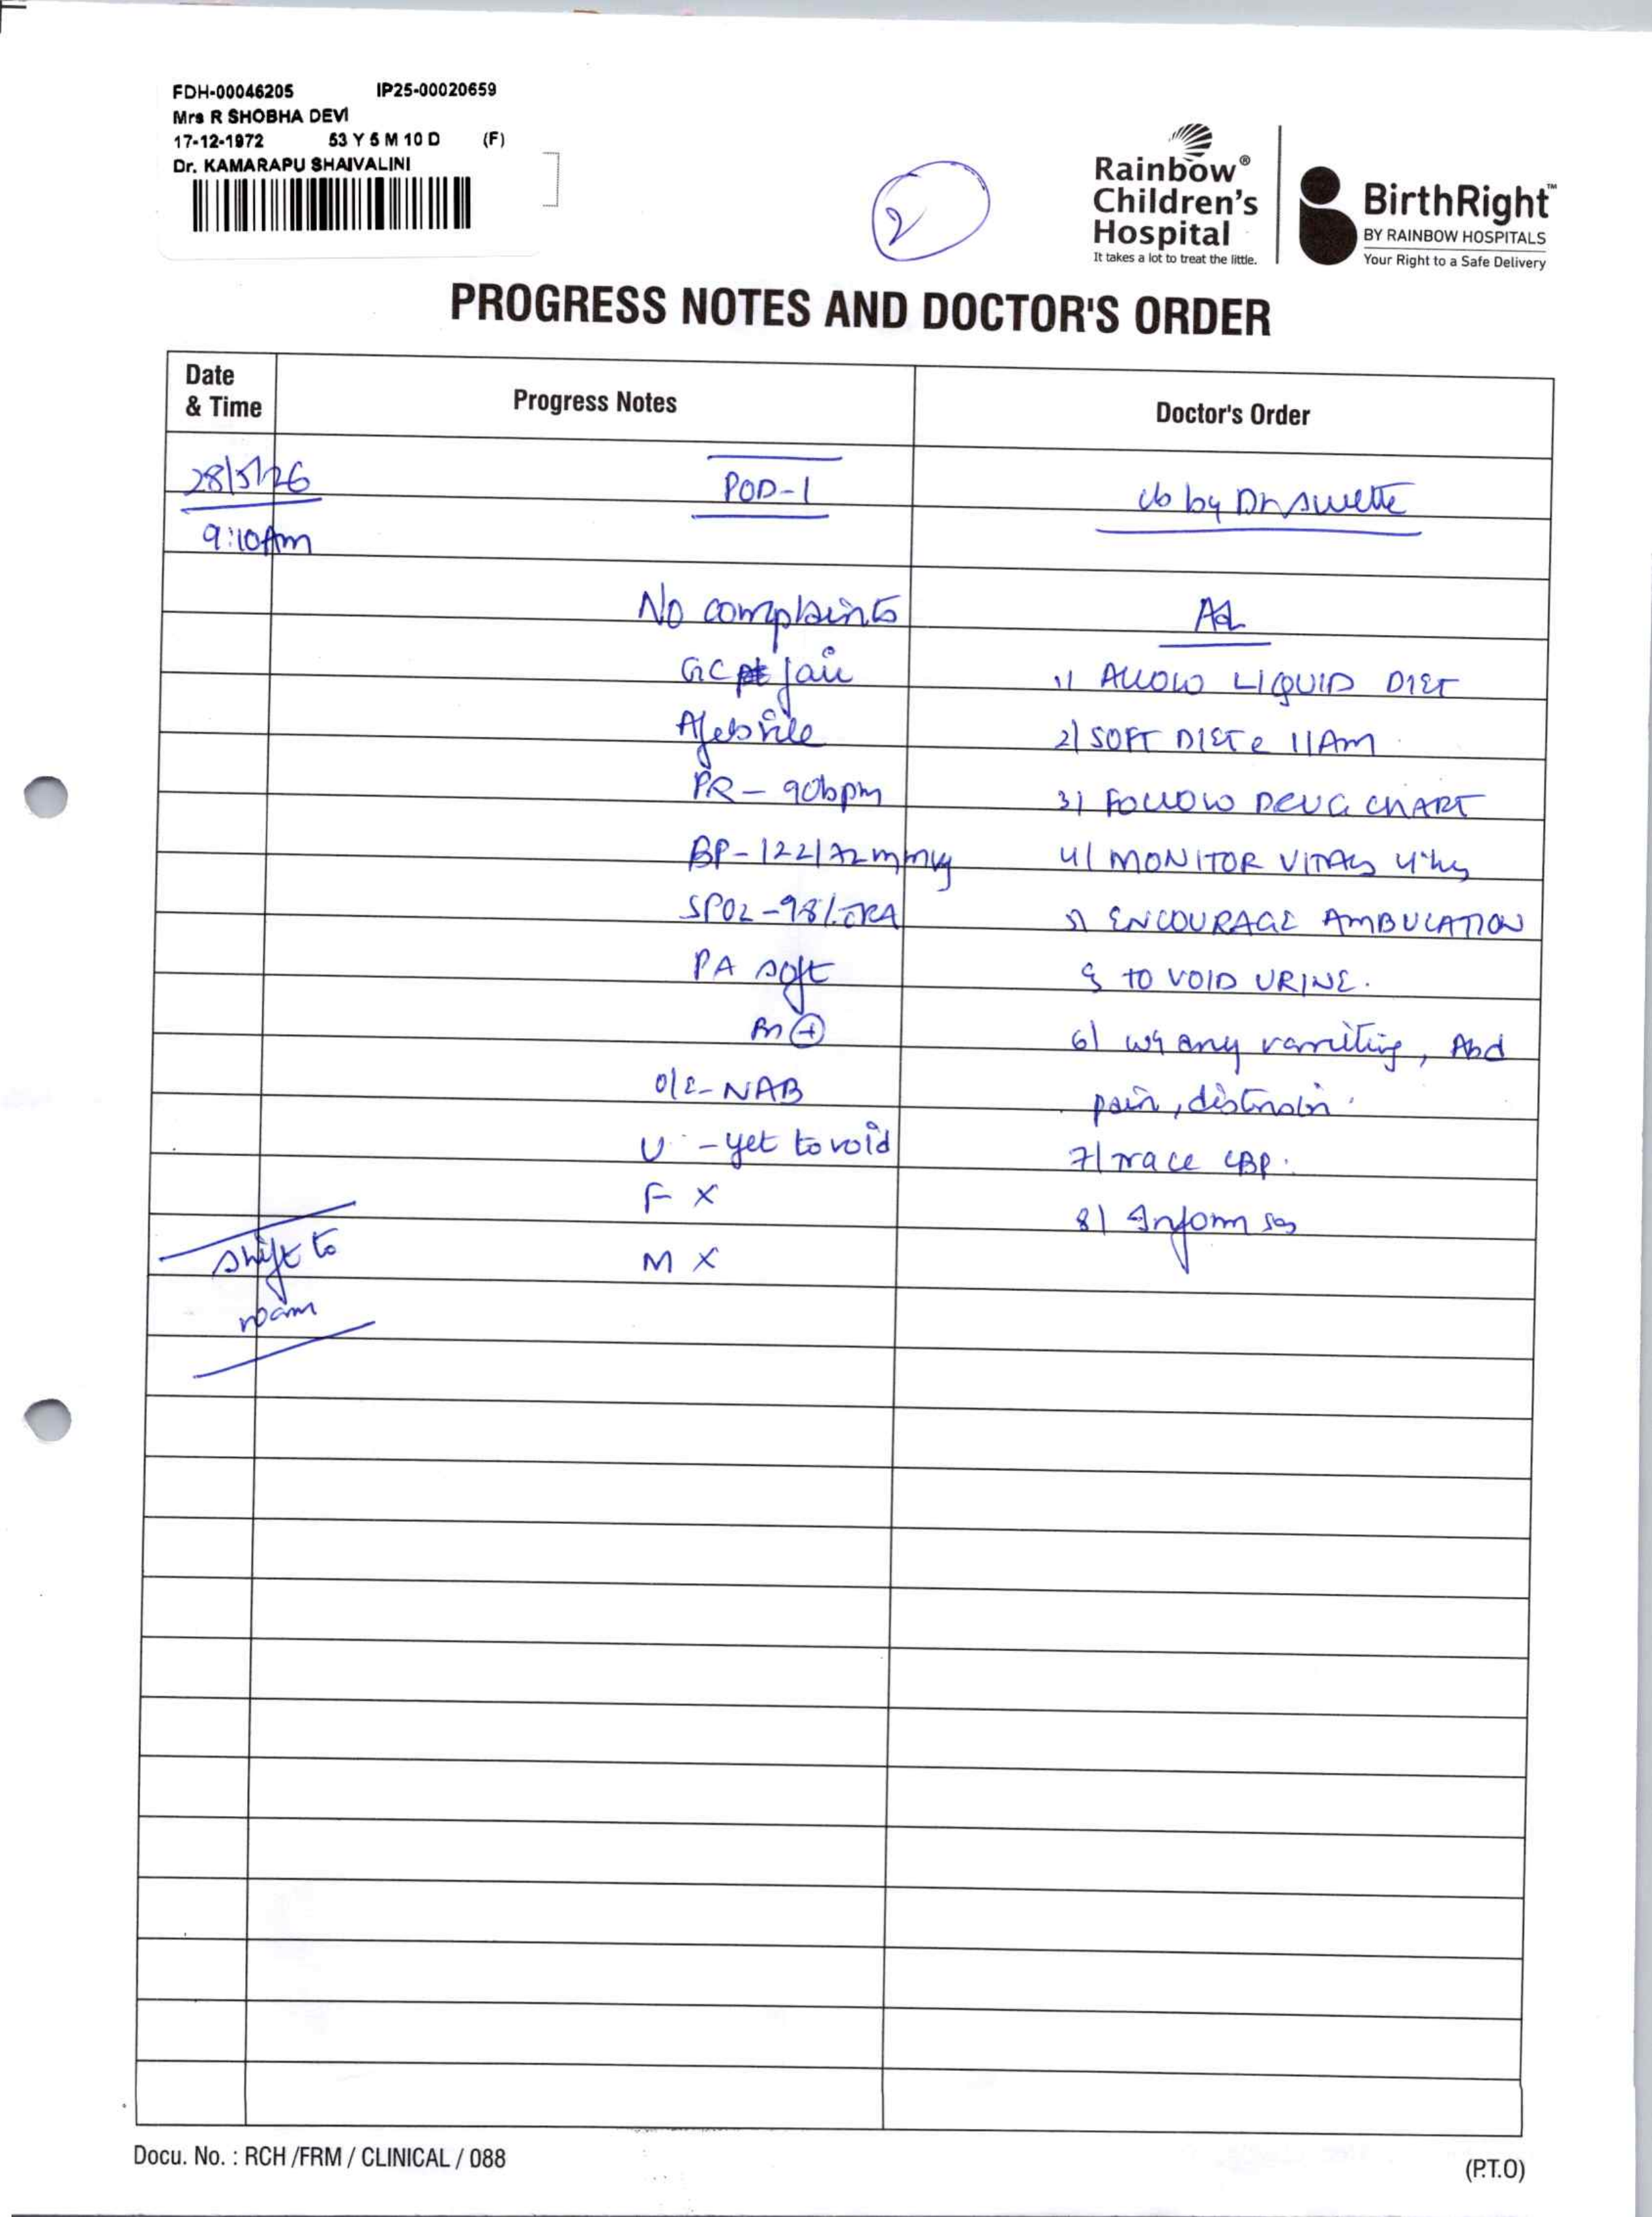 FDH-00046205 IP25-00020659
Mrs R SHOBHA DEVI
17-12-1972 53 Y 5 M 10 D (F)
Dr. KAMARAPU SHAIVALINI
2
Rainbow®
Children's
Hospital
It takes a lot to treat the little.
BirthRight™
BY RAINBOW HOSPITALS
Your Right to a Safe Delivery
PROGRESS NOTES AND DOCTOR'S ORDER
Date
& Time
Progress Notes
Doctor's Order
28/5/26 POD-1 by Dr
9:10Am
No complaints
GC fair 1) ALLOW LIQUID DIET
Afebrile 2) SOFT DIET @ 11Am
PR - 90bpm 3) FOLLOW DRUG CHART
BP - 122/72mmHg 4) MONITOR VITALS 4
SPO2 - 98% RA 5) ENCOURAGE AMBULATION
PA soft & TO VOID URINE.
(+) 6) w/f any vomiting, Abd
O/E- NAB pain, distension.
U - yet to void 7) Trace CBP.
F X 8) Inform sos
Shift to M X
room
Docu. No. : RCH /FRM / CLINICAL / 088
(P.T.O)